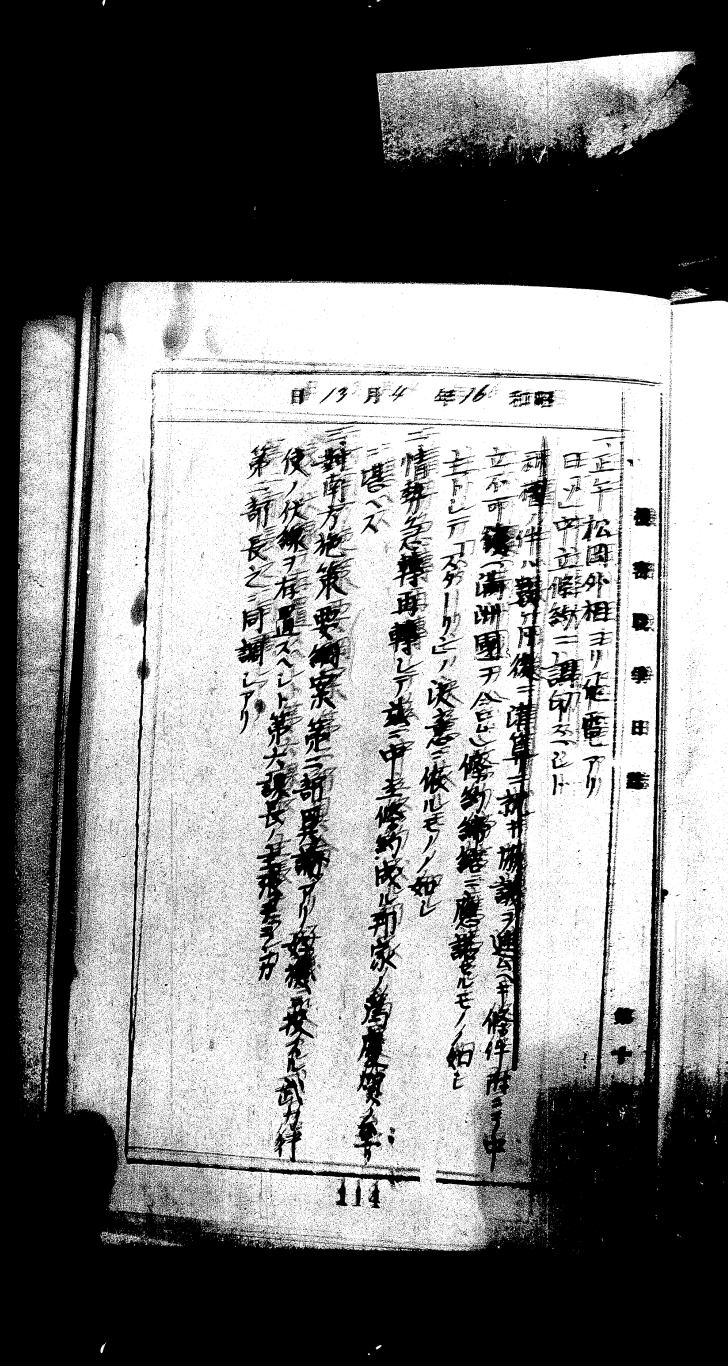 機密戦争日誌
第十
昭和16年4月13日
一、正午松岡外相ヨリ飛電アリ
日「ソ」中立條約ニ調印スベシト
利権ノ件ハ数ヶ月後ニ清算ニ就キ協議ヲ進ムベキ條件附ニテ中
立不可侵(満洲國ヲ含ム)條約締結ニ應諾セルモノノ如シ
トシテ「スターリン」ノ決意ニ依ルモノノ如シ
二、情勢急轉再轉シテ遂ニ中立條約成ル邦家ノ為慶賀ノ至リ
ニ堪ヘズ
三、対南方施策要綱案第二部異論アリ好機ヲ捉スル武力行
使ノ代線ヲ存置スベシト第六課長ノ主張
第一部長之ニ同調シアリ
114